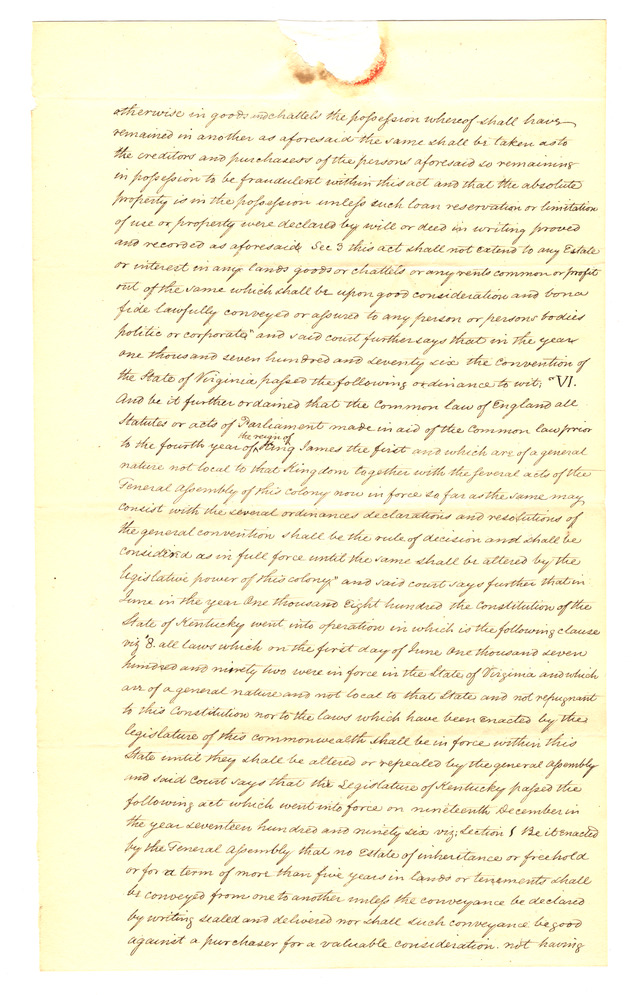 otherwise in goods and chattels the possession whereof shall have
remained in another as aforesaid the same shall be taken as to
the creditors and purchasers of the persons aforesaid so remaining
in possession to be fraudulent within this act and that the absolute
property is in the possession unless such loan reservation or limitation
of use or property were declared by will or deed in writing proved
and recorded as aforesaid, Sec 3 this act shall not extend to any Estate
or interest in any lands goods or chattels or any rents common or profit
out of the same which shall be upon good consideration and bona
fide lawfully conveyed or assured to any person or persons bodies
politic or corporate," and said court further says that in the year
one thousand seven hundred and seventy six the convention of
the State of Virginia passed the following ordinance to wit; "VI.
And be it further ordained that the Common law of England all
Statutes or acts of Parliament made in aid of the Common law prior
to the fourth year of the reign of King James the first and which are of a general
nature not local to that Kingdom together with the several acts of the
General Assembly of this colony now in force so far as the same may
consist with the several ordinances declarations and resolutions of
the general convention shall be the rule of decision and shall be
considered as in full force until the same shall be altered by the
legislative power of this colony;" and said court says further that in
June in the year One thousand Eight hundred the constitution of the
State of Kentucky went into operation in which is the following clause
viz "8. all laws which on the first day of June One thousand seven
hundred and ninety two were in force in the State of Virginia and which
are of a general nature and not local to that State and not repugnant
to this Constitution nor to the laws which have been enacted by the
legislature of this commonwealth shall be in force within this
State until they shall be altered or repealed by the general Assembly
and said Court says that the Legislature of Kentucky passed the
following act which went into force on nineteenth December in
the year seventeen hundred and ninety six viz; Section 1 Be it enacted
by the General Assembly that no Estate of inheritance or freehold
or for a term of more than five years in lands or tenements shall
be conveyed from one to another unless the conveyance be declared
by writing sealed and delivered nor shall such conveyance be good
against a purchaser for a valuable consideration not having